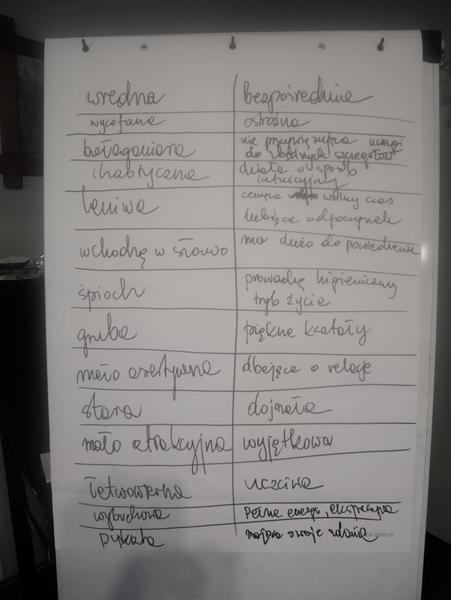 wredna bezpośrednia
wycofana ostrożna
bałaganiara nie przywiązująca uwagi
do zbędnych szczegółów
chaotyczna działa w sposób
intuicyjny
leniwa ceniąca wolny czas
lubiąca odpoczynek
wchodzę w słowo ma dużo do powiedzenia
śpioch prowadzę higieniczny
tryb życia
gruba piękne kształty
mało asertywna dbająca o relacje
stara dojrzała
mało atrakcyjna wyjątkowa
łatwowierna uczciwa
wybuchowa pełna energii, ekspresyjna
pyskata mająca swoje zdanie